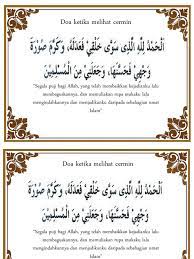 Doa ketika melihat cermin
اَلْحَمْدُ لِلّٰهِ الَّذِى سَوَّى خَلْقِيْ فَعَدَلَهُ، وَكَرَّمَ صُوْرَةَ
وَجْهِيْ فَحَسَّنَهَا، وَجَعَلَنِيْ مِنَ الْمُسْلِمِيْنَ
"Segala puji bagi Allah, yang telah membaguskan kejadianku lalu
membaguskannya, dan memuliakan rupa mukaku lalu
mengindahkannya dan menjadikanku daripada sebahagian umat
Islam"
Doa ketika melihat cermin
اَلْحَمْدُ لِلّٰهِ الَّذِى سَوَّى خَلْقِيْ فَعَدَلَهُ، وَكَرَّمَ صُوْرَةَ
وَجْهِيْ فَحَسَّنَهَا، وَجَعَلَنِيْ مِنَ الْمُسْلِمِيْنَ
"Segala puji bagi Allah, yang telah membaguskan kejadianku lalu
membaguskannya, dan memuliakan rupa mukaku lalu
mengindahkannya dan menjadikanku daripada sebahagian umat
Islam"